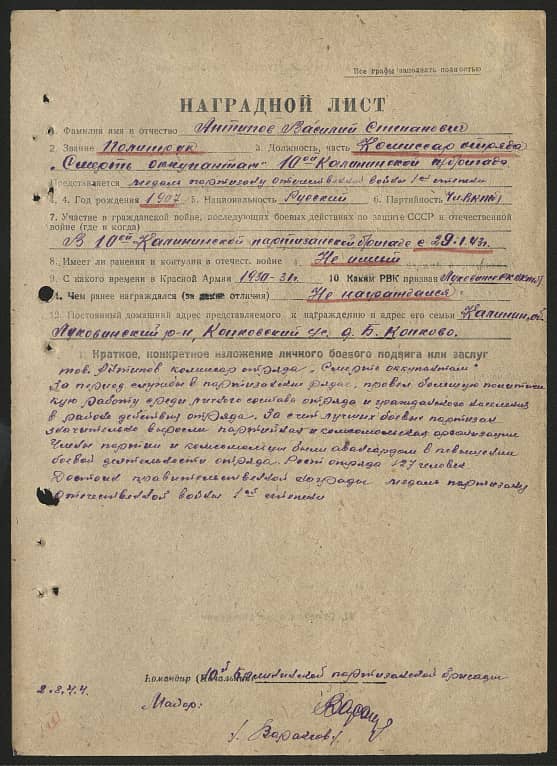 Все графы заполнять полностью
НАГРАДНОЙ ЛИСТ
1. Фамилия имя и отчество Антипов Василий Степанович
2. Звание Политрук 3. Должность, часть Комиссар отряда
„Смерть оккупантам“ 10ой Калининской п/бригады
Представляется медаль партизану отечественной войны 1ой степени
4. Год рождения 1907 5. Национальность Русский 6. Партийность Чл. ВКП(б)
7. Участие в гражданской войне, последующих боевых действиях по защите СССР и отечественной
войне (где и когда)
В 10ой Калининской партизанской бригаде с 29.1.43г.
8. Имеет ли ранения и контузии в отечест. войне Не имеет
9. С какого времени в Красной Армии 1930-31г. 10 Каким РВК призван
11. Чем ранее награждался (за какие отличия) Не награждался
12. Постоянный домашний адрес представляемого к награждению и адрес его семьи Калинин. об.
Луковинский р-н, Копковский с/с. д. Б. Копково.
1. Краткое, конкретное изложение личного боевого подвига или заслуг
тов. Антипов комиссар отряда „Смерть оккупантам“
За период службы в партизанских рядах, провел большую политичес
кую работу среди личного состава отряда и гражданского населения
в районе действия отряда. За счет лучших боевых партизан
значительно выросли партийная и комсомольская организации
Члены партии и комсомольцы были авангардом в повышении
боевой деятельности отряда. Рост отряда 127 человек
Достоин правительственной награды медаль партизану
отечественной войны 1ой степени
Командир (Начальник) 10й Калининской партизанской бригады
2.3.44.
Майор:
/. Вараксов /